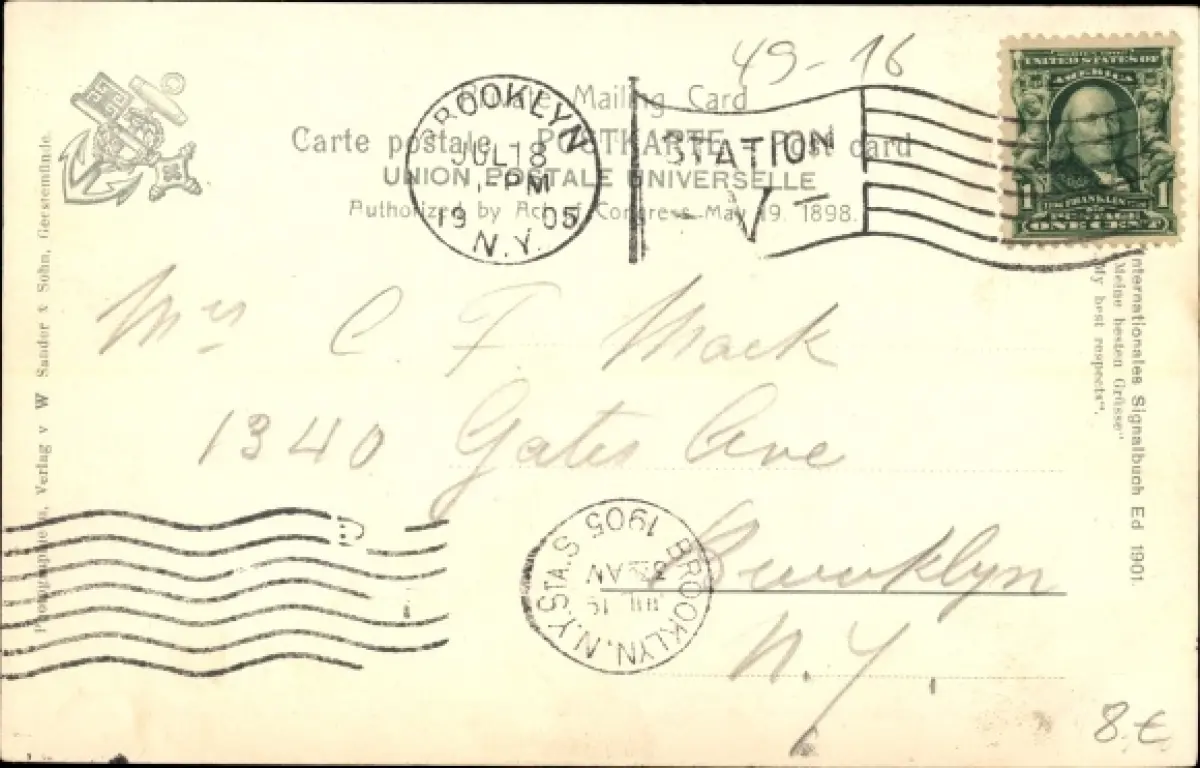 49-16
Private Mailing Card
Carte postale POSTKARTE Post card
UNION POSTALE UNIVERSELLE
Authorized by Act of Congress May 19. 1898.
BROOKLYN
JUL 18
PM
19 05
N.Y.
STATION
V
UNITED STATES OF
AMERICA
1 FRANKLIN 1
POSTAGE
ONE CENT
Mrs C. F. Mack
1340 Gates Ave
Brooklyn
N.Y.
BROOKLYN, N.Y. STA. S
1905
Verlag v W Sander & Sohn, Geestemünde.
Internationales Signalbuch Ed 1901.
"Meine besten Grüsse"
"My best respects".
8.€